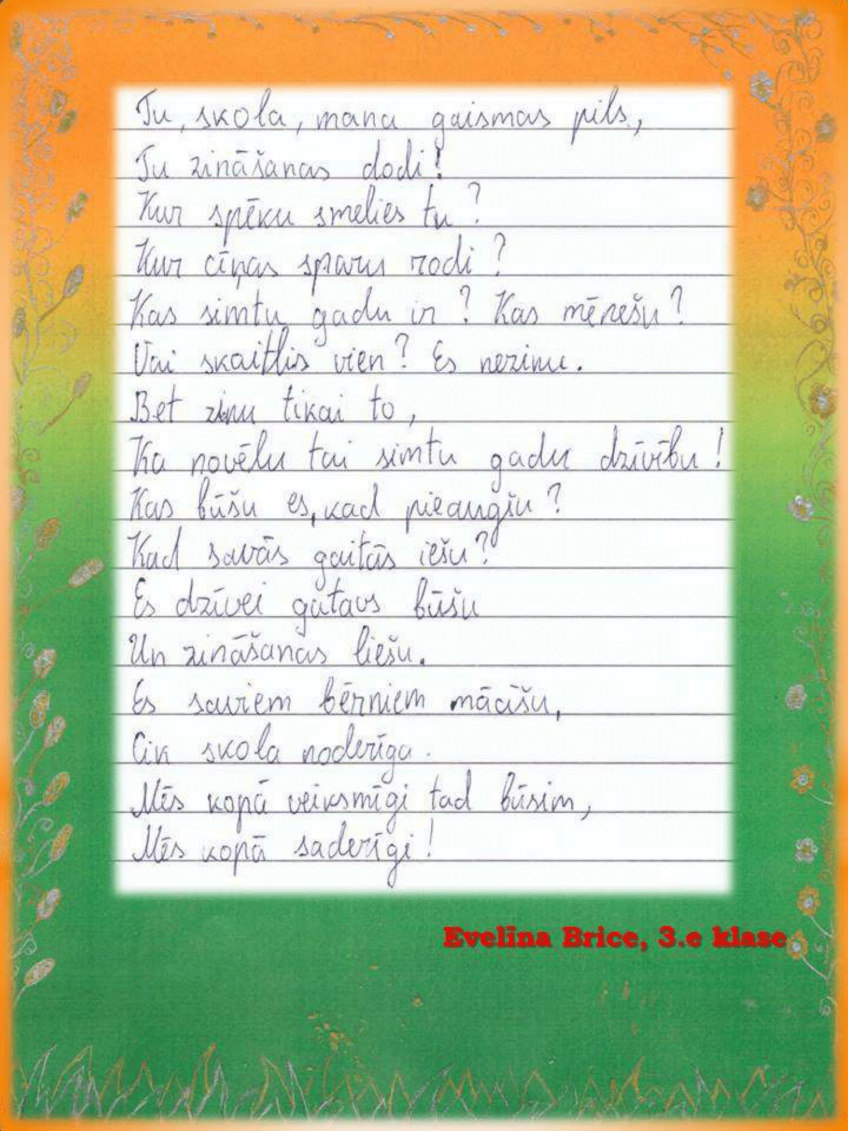 Tu, skola, mana gaismas pils,
Tu zināšanas dodi!
Kur spēku smelies tu?
Kur cīņas sparu rodi?
Kas simtu gadu ir? Kas mēnešu?
Vai skaitlis vien? Es nezinu.
Bet zinu tikai to,
Ka novēlu tai simtu gadu dzīvību!
Kas būšu es, kad pieaugšu?
Kad savās gaitās iešu?
Es dzīvei gatavs būšu
Un zināšanas liešu.
Es saviem bērniem mācīšu,
Cik skola noderīga.
Mēs kopā veiksmīgi tad būsim,
Mēs kopā saderīgi!
Evelina Brice, 3.e klase